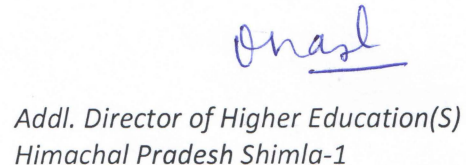 Addl. Director of Higher Education(S)
Himachal Pradesh Shimla-1